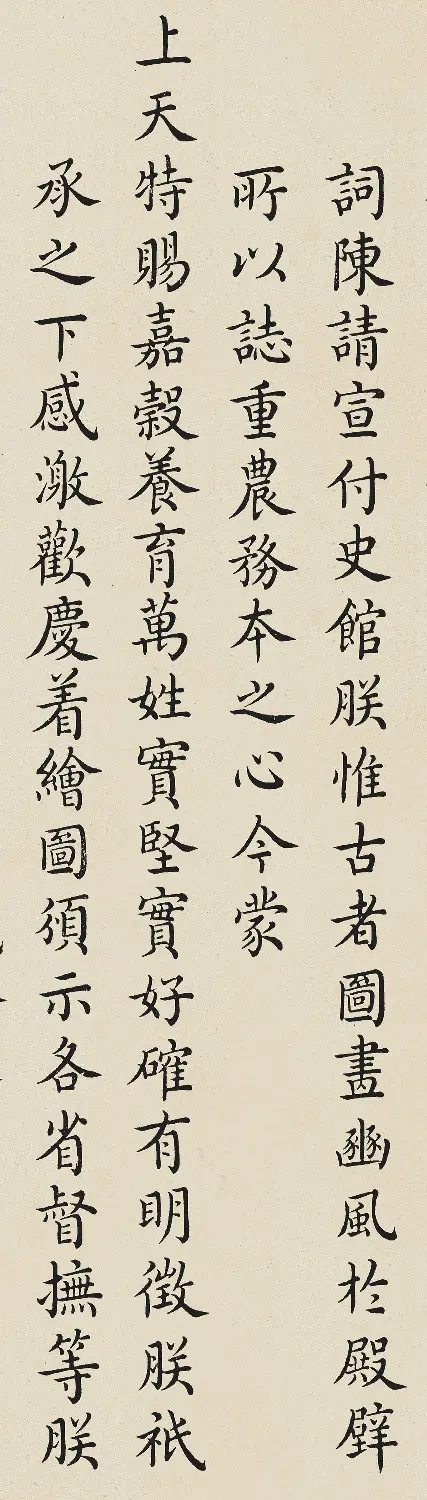 詞陳請宣付史館朕惟古者圖畫豳風於殿壁
所以誌重農務本之心今蒙
上天特賜嘉穀養育萬姓實堅實好確有明徵朕祇
承之下感激歡慶着繪圖頒示各省督撫等朕